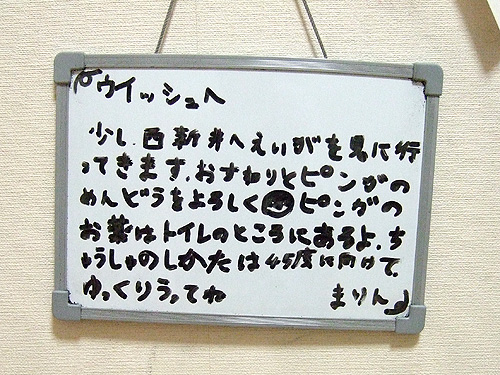 『ウイッシュへ
少し西新井へえいがを見に行
ってきます。おすわりとピングの
めんどうをよろしくピングの
お薬はトイレのところにあるよ。ち
ゅうしゃのしかたは45度に向けて、
ゆっくりうってね
まりん』